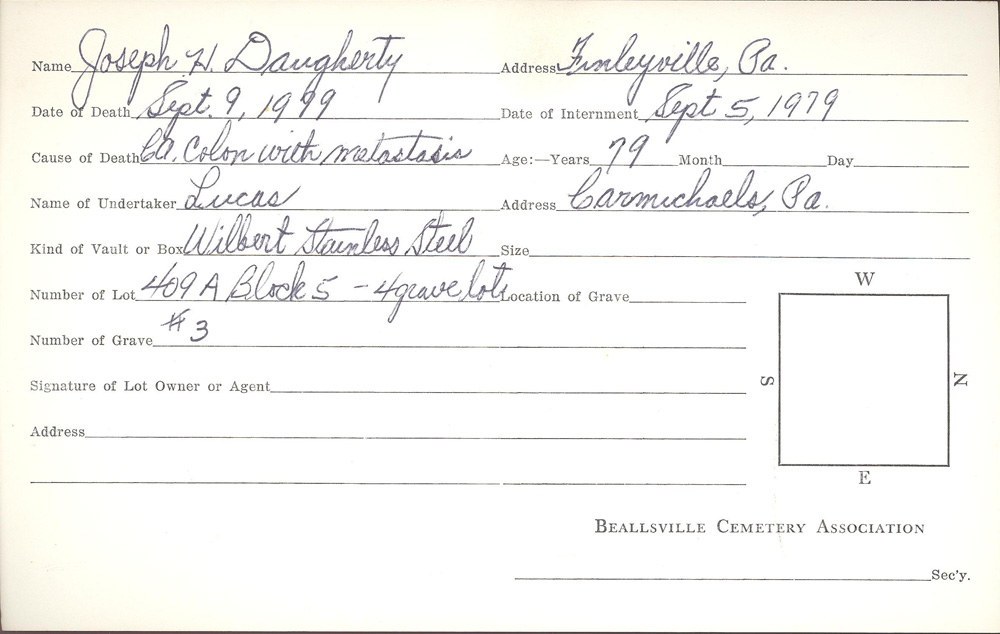 Name Joseph H. Daugherty Address Finleyville, Pa.
Date of Death Sept. 9, 1979 Date of Internment Sept 5, 1979
Cause of Death Ca. Colon with metastasis Age:—Years 79 Month Day
Name of Undertaker Lucas Address Carmichaels, Pa.
Kind of Vault or Box Wilbert Stainless Steel Size
Number of Lot 409 A Block 5 - 4 grave lots Location of Grave
W
Number of Grave #3
S N
Signature of Lot Owner or Agent
Address
E
BEALLSVILLE CEMETERY ASSOCIATION
Sec'y.